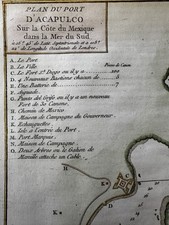 PLAN DU PORT
D'ACAPULCO
Sur la Côte du Mexique
dans la Mer du Sud
de Longitude Occidentale de Londres.
A. Le Port
B. La Ville
C. Le Fort
D. 4 Nouveaux Bastions chacun de 8
E. Une Batterie de 7
F.
G. Punta del Grifo où il y a un nouveau
Fort de
H. Chemin de Mexico
I. Maison de Campagne du Gouverneur
K. Echauguettes
L. Isle à l'entrée du Port
M. Port Marquis
N. Maison de Campagne
O. Deux Arbres où le Galion de
Manille attache un Cable
K